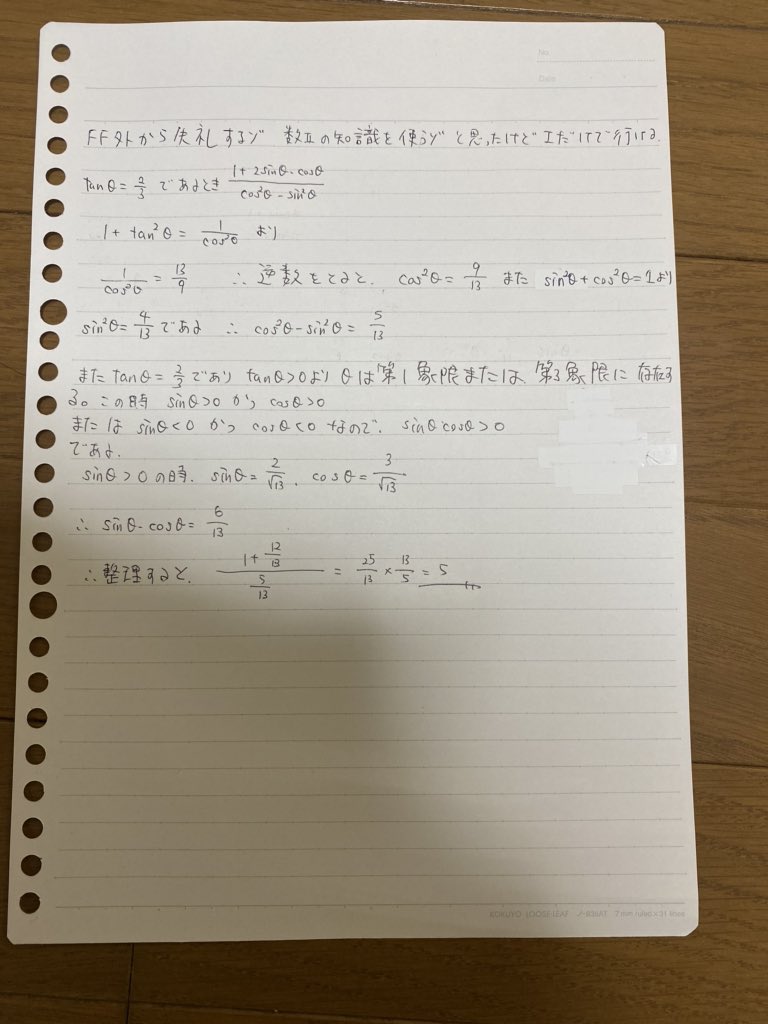 No.
Date
FF外から失礼するゾ 数Ⅱの知識を使うゾと思ったけどⅠだけで行ける.
tanθ = 2/3 であるとき (1+2sinθ·cosθ)/(cos²θ-sin²θ)
1 + tan²θ = 1/cos²θ より
1/cos²θ = 13/9 ∴逆数をとると, cos²θ = 9/13 また sin²θ+cos²θ=1より
sin²θ = 4/13 である ∴ cos²θ-sin²θ = 5/13
また tanθ = 2/3 であり tanθ>0より θは第1象限または, 第3象限に存在す
る。この時 sinθ>0 かつ cosθ>0
または sinθ<0 かつ cosθ<0 なので, sinθ cosθ>0
である.
sinθ>0の時, sinθ = 2/√13, cosθ = 3/√13
∴ sinθ·cosθ = 6/13
∴整理すると, (1 + 12/13)/(5/13) = 25/13 × 13/5 = 5
KOKUYO LOOSE-LEAF ノ-836AT 7 mm ruled×31 lines